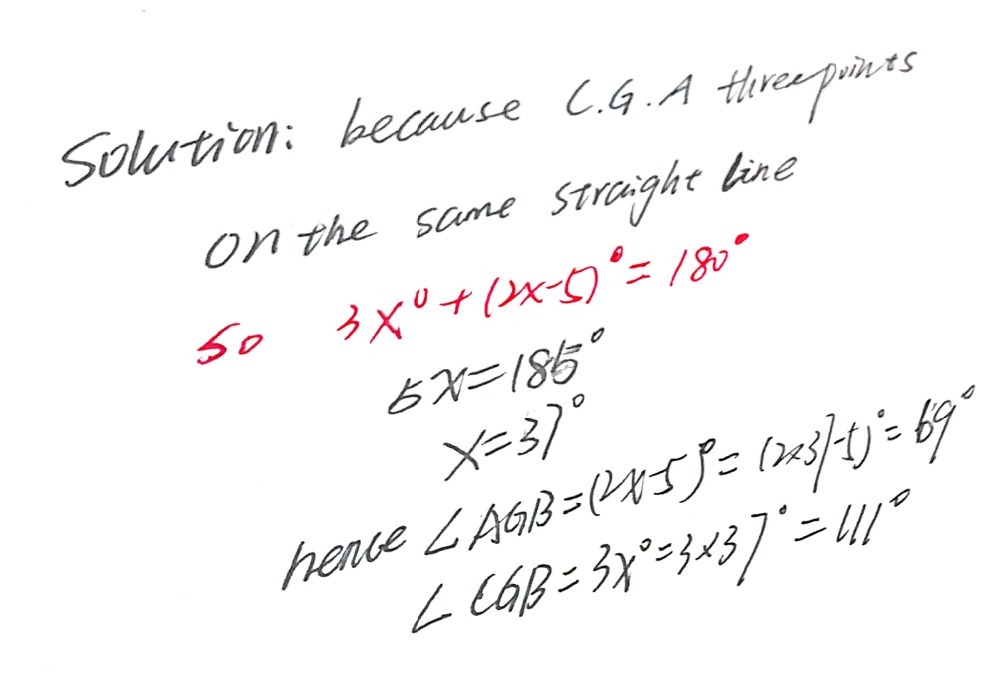 Solution: because C.G.A three points
on the same straight line
So 3x°+(2x-5)°=180°
5x=185°
x=37°
hence ∠AGB=(2x-5)°=(2×37-5)°=69°
∠CGB=3x°=3×37°=111°